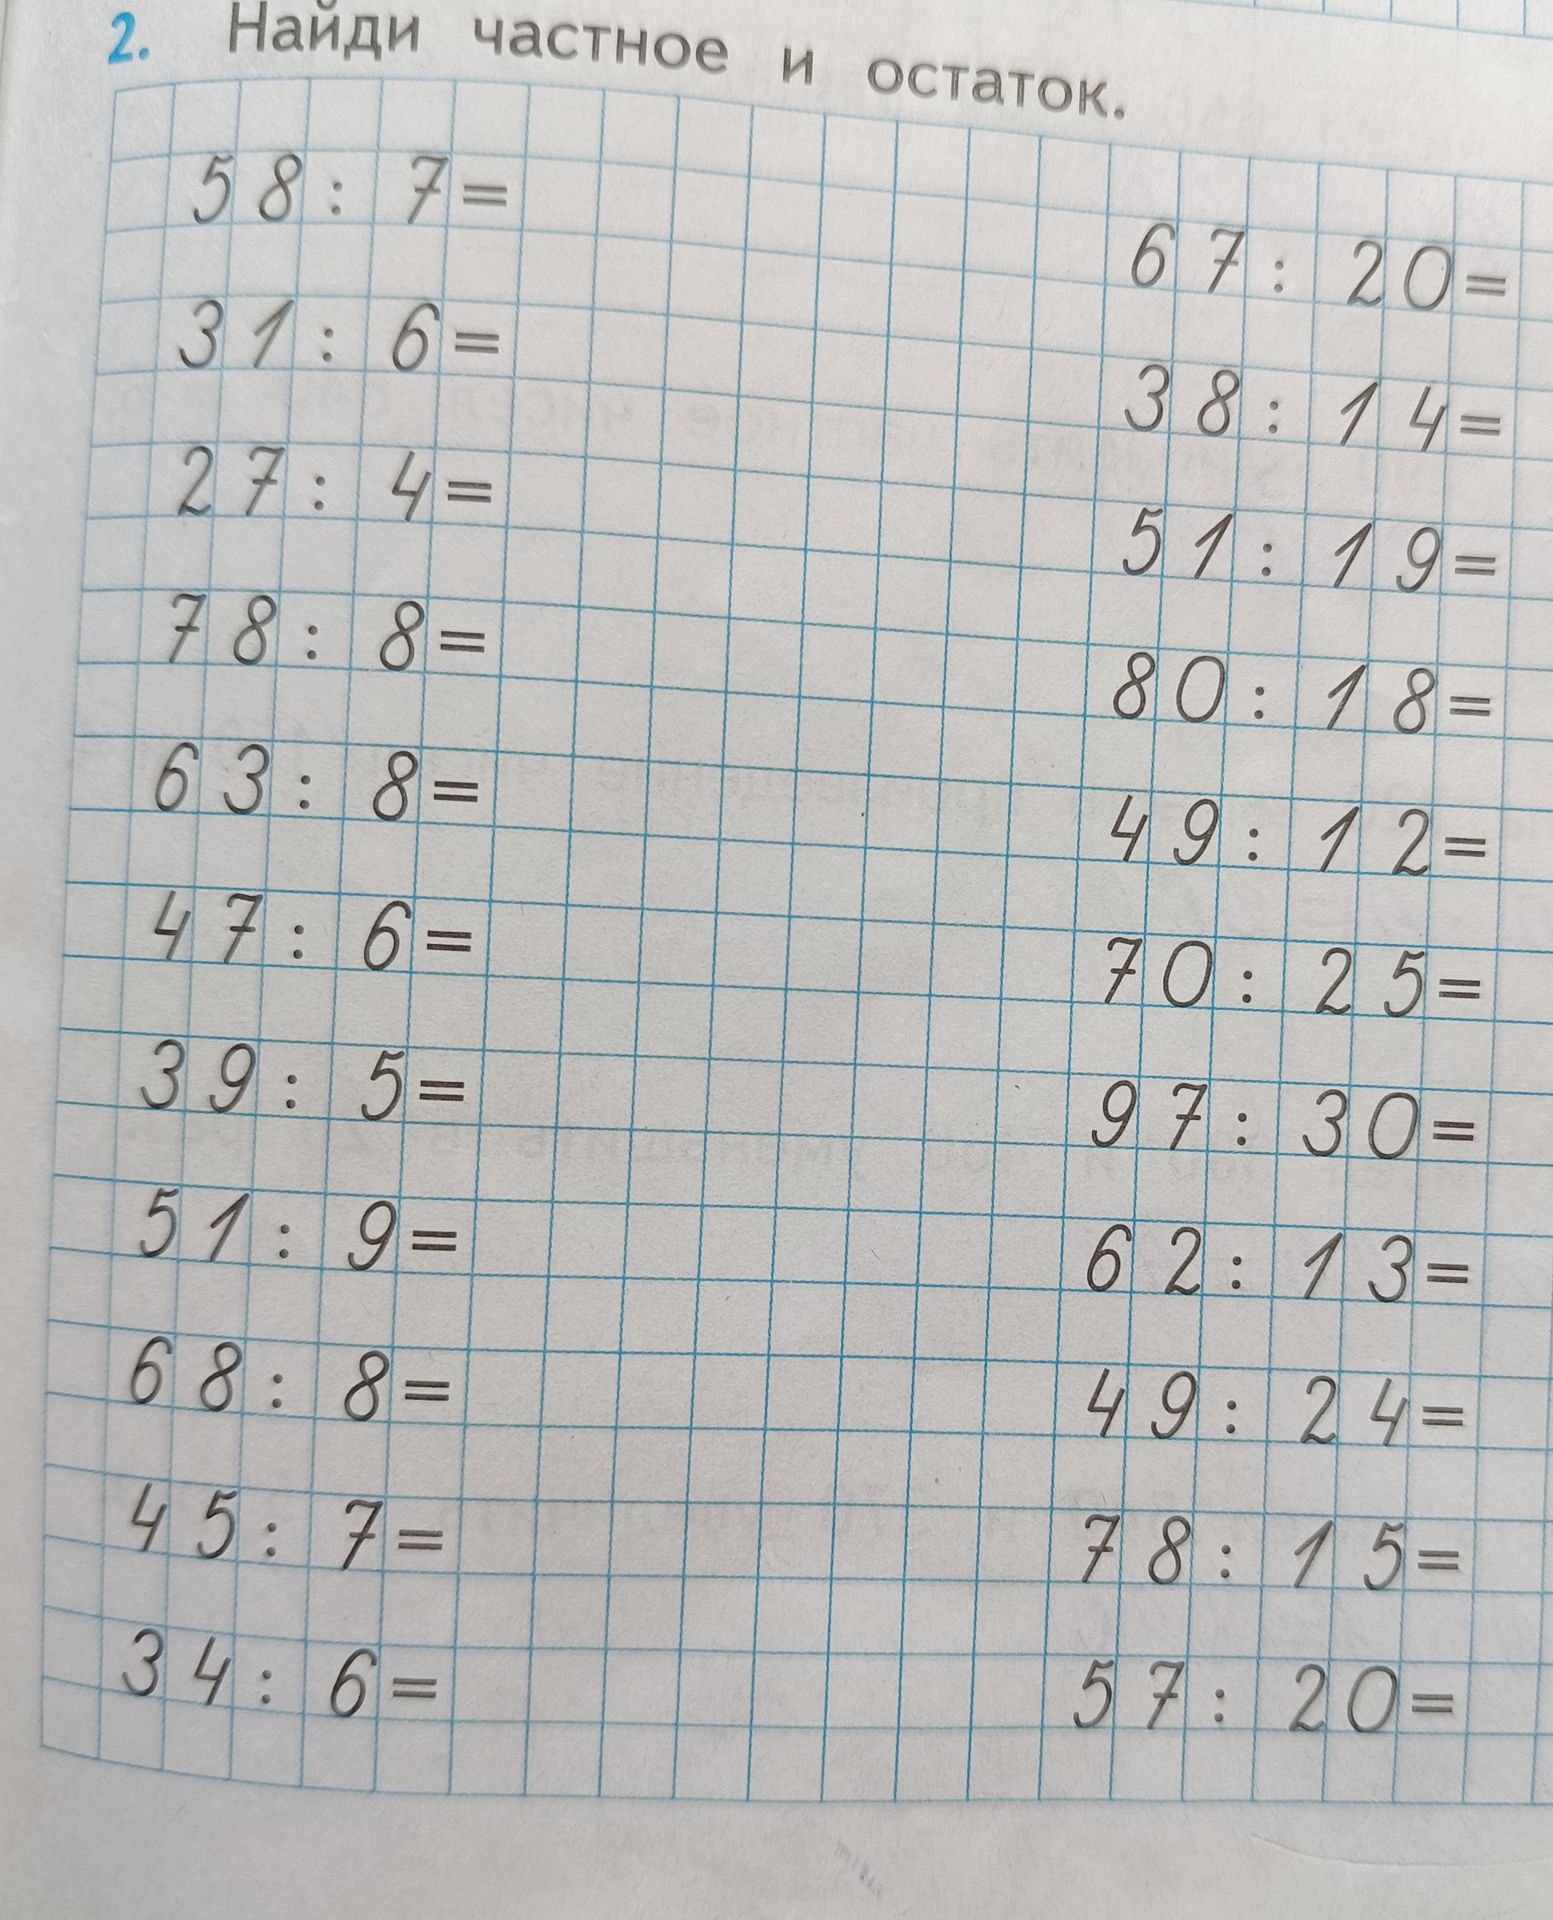 2. Найди частное и остаток.
58: 7=
31: 6=
27: 4=
78: 8=
63: 8=
47: 6=
39: 5=
51: 9=
68: 8=
45: 7=
34: 6=
67: 20=
38: 14=
51: 19=
80: 18=
49: 12=
70: 25=
97: 30=
62: 13=
49: 24=
78: 15=
57: 20=